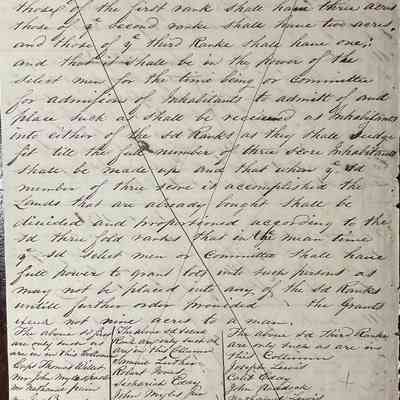 those of the first rank shall have three acres
those of ye second ranke shall have two acres,
and those of ye third Ranke shall have one;
and that it shall be in the power of the
select men for the time being or Committee
for admission of Inhabitants to admitt of and
place such as shall be received as Inhabitants
into either of the sd Ranks as they shall judge
fit till the full number of three score Inhabitants
shall be made up and that when ye sd
number of three score is accomplished the
Lands that are already bought shall be
divided and proportioned according to the
sd three fold ranks that in the mean time
ye sd Select men or Committee shall have
full power to grant lots unto such persons as
may not be placed into any of the sd Ranks
untill further order provided the Grants
exceed not nine acres to a man.
The above sd first
are only such as
are in this Column
Capt Thomas Willet
Mr John Myles
The above sd Second
Rank are only such as
are in this Column
Luther
Robert Jones
Zachariah Eddy
John Myles Jun
The above sd Third Ranke
are only such as are in
this Collumn
Joseph Lewis
Caleb Eddy
John Ruddock
Nathaniel Lewis